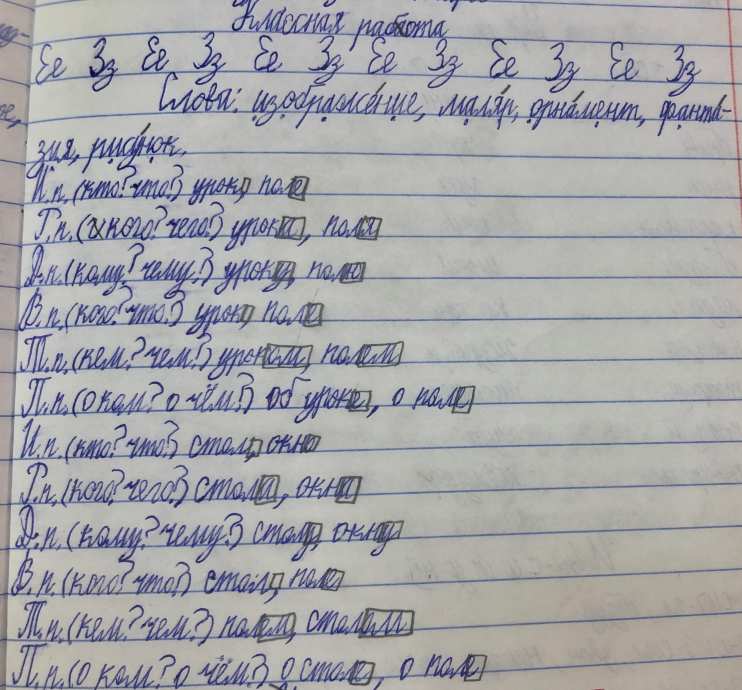 Классная работа
Ее Зз Ее Зз Ее Зз Ее Зз Ее Зз Ее Зз
Слова: изображе́ние, маля́р, орна́мент, фанта́-
зия, рису́нок.
И.п. (кто? что?) урок, поле
Р.п. (кого? чего?) урока, поля
Д.п. (кому? чему?) уроку, полю
В.п. (кого? что?) урок, поле
Т.п. (кем? чем?) уроком, полем
П.п. (о ком? о чём?) об уроке, о поле
И.п. (кто? что?) стол, окно
Р.п. (кого? чего?) стола, окна
Д.п. (кому? чему?) столу, окну
В.п. (кого? что?) стол, поле
Т.п. (кем? чем?) полем, столом
П.п. (о ком? о чём?) о столе, о поле